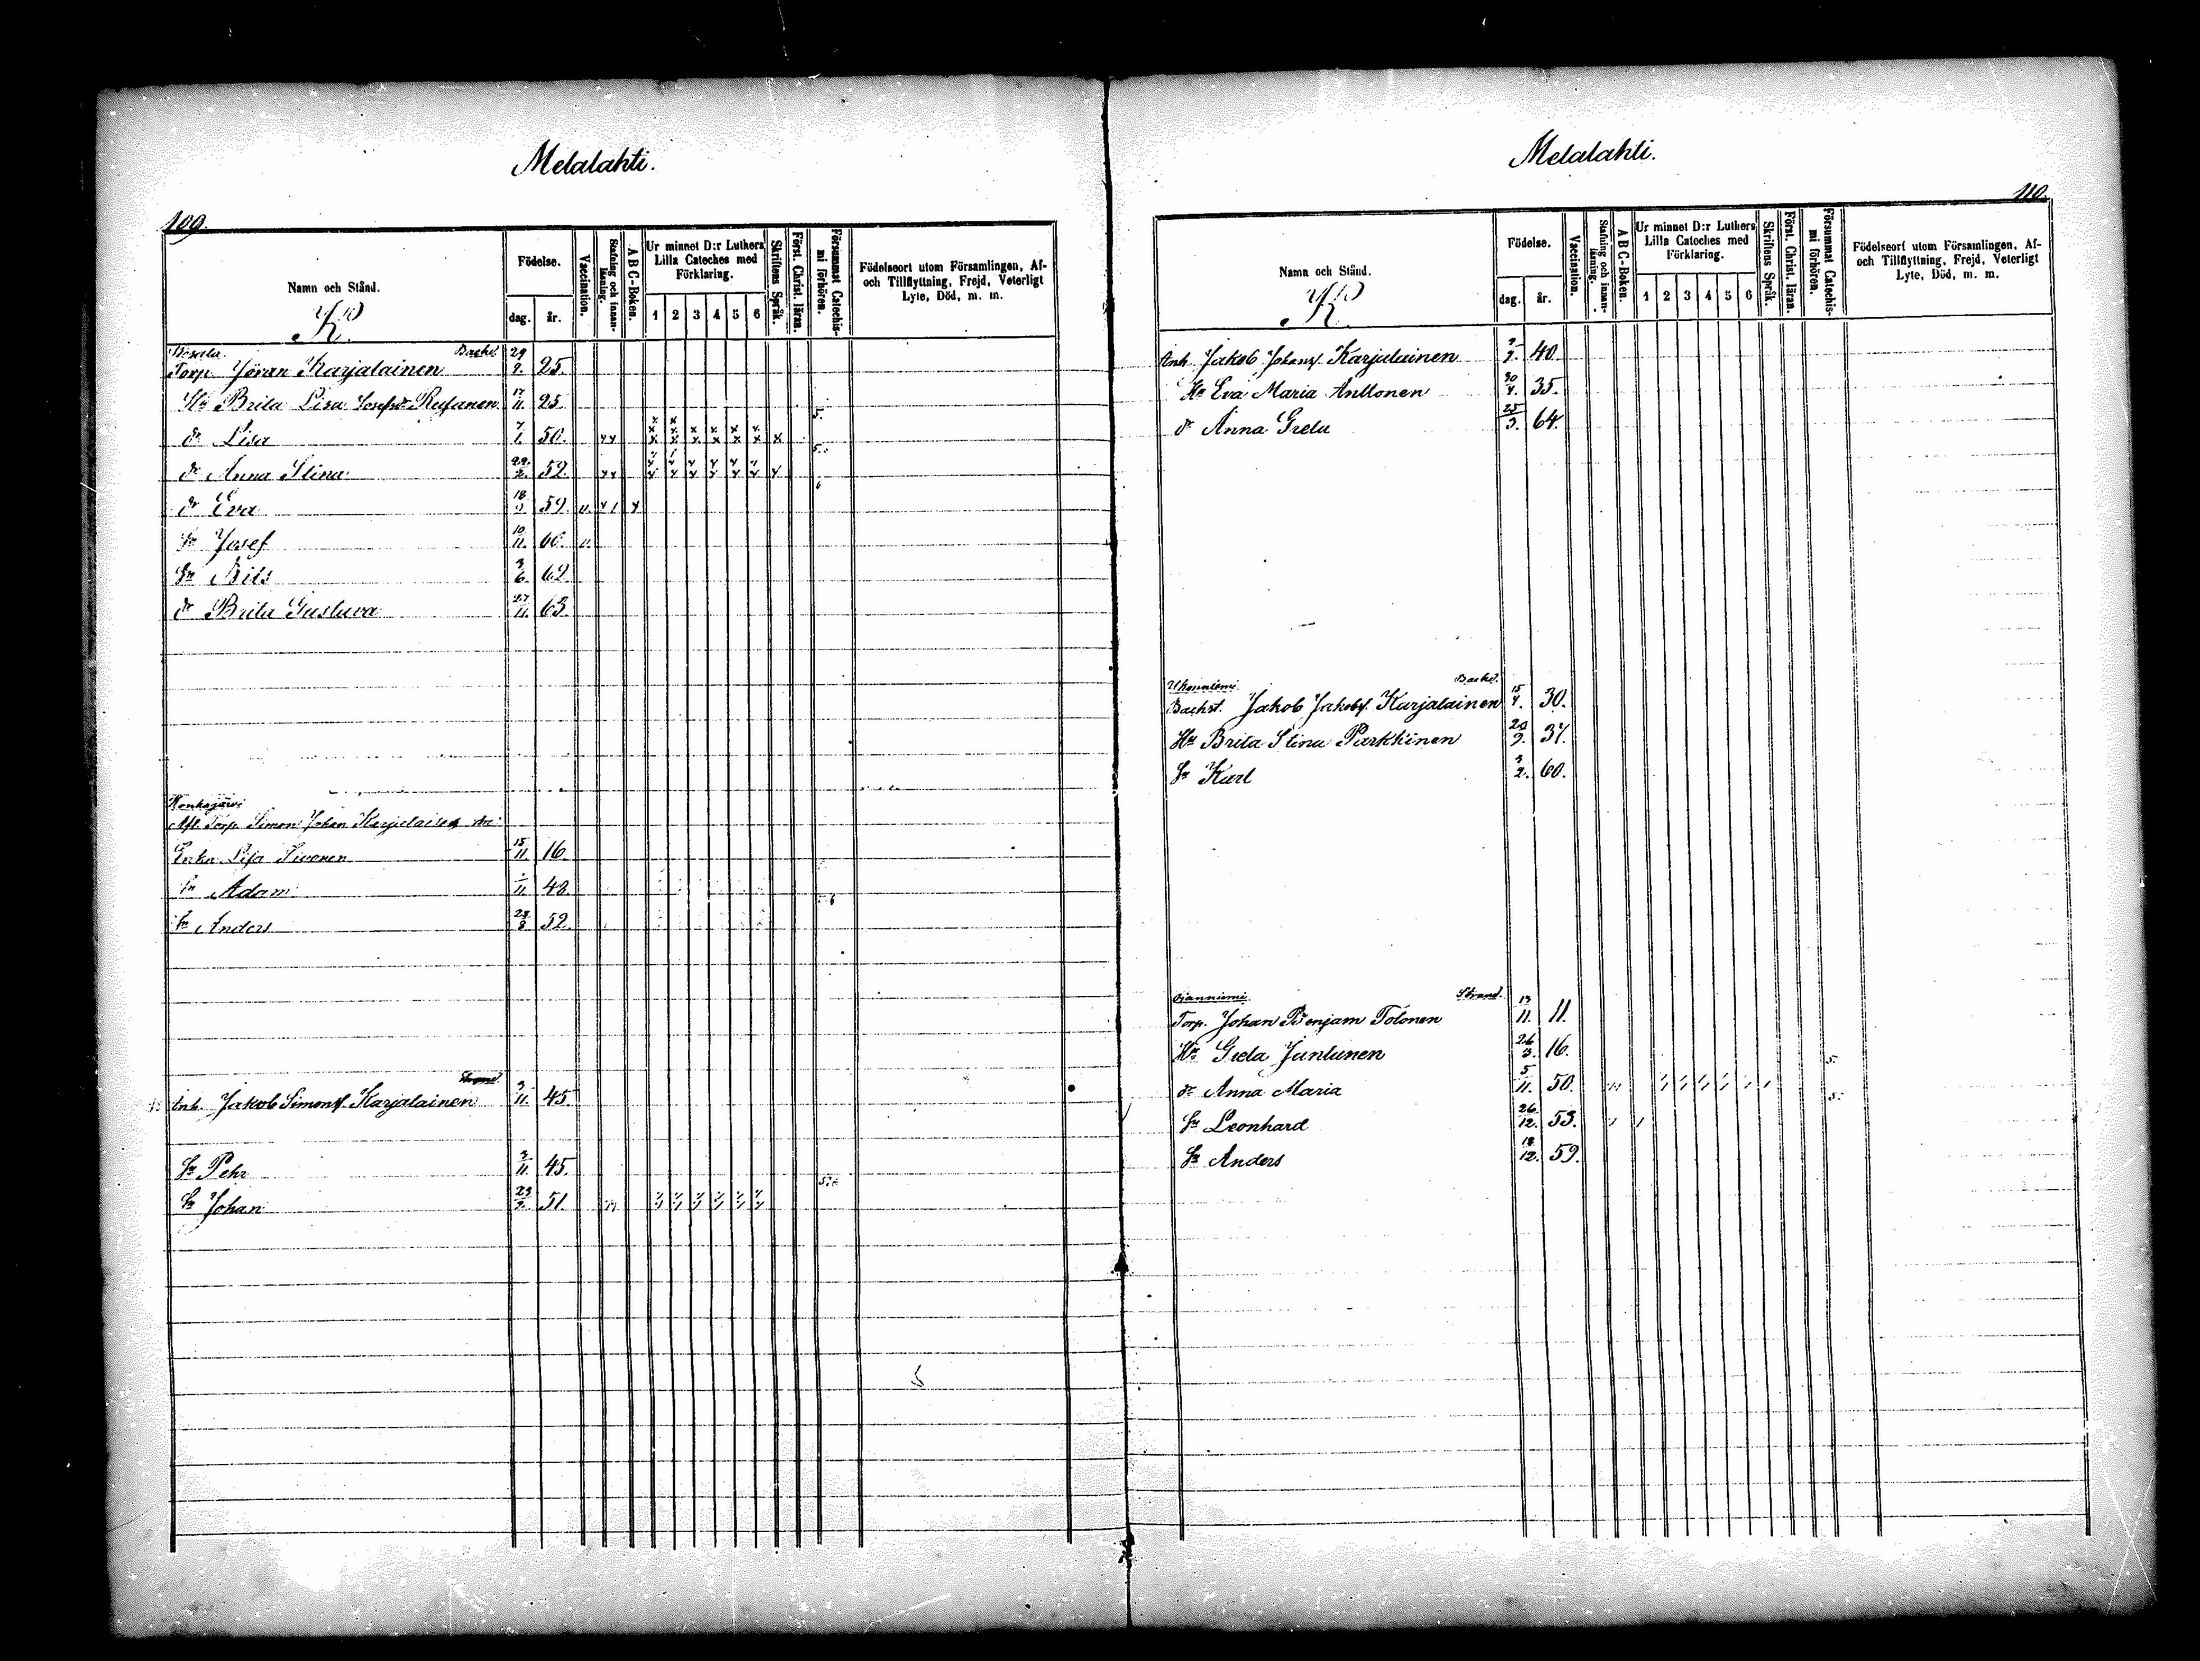 Melalahti.
109.
Namn och Stånd.
Födelse.
dag.
år.
Vaccination.
Stafning och innanläsning.
A B C-Boken.
Ur minnet D:r Luthers
Lilla Cateches med
Förklaring.
1 2 3 4 5 6
Skriftens Språk.
Först. Christ. läran.
Försummat Catechismi förhören.
Födelseort utom Församlingen, Af-
och Tillflyttning, Frejd, Veterligt
Lyte, Död, m. m.
Backst.
Torp. Jöran Karjalainen 29/2. 25.
Hu Brita Lisa Josefsdr 17/11. 25
dr Lisa 50.
dr Anna Stina 29/2. 52.
dr Eva 59. v.
Sn Josef 10/11. 60. v.
Sn Nils 3/6. 62
dr Brita Gustava 27/11. 63.
Konkajärvi
Afl. Torp. Simon Johan Karjalainen
Enka Lisa Sivonen 15/11. 16.
Sn Adam 48.
Sn Anders 52.
Strand.
Inh. Jakob Simons. Karjalainen 3/11. 45.
Sn Pehr 3/11. 45.
Sn Johan 51.
5
Melalahti.
110.
Namn och Stånd.
Födelse.
dag.
år.
Vaccination.
Stafning och innanläsning.
A B C-Boken.
Ur minnet D:r Luthers
Lilla Cateches med
Förklaring.
1 2 3 4 5 6
Skriftens Språk.
Först. Christ. läran.
Försummat Catechismi förhören.
Födelseort utom Församlingen, Af-
och Tillflyttning, Frejd, Veterligt
Lyte, Död, m. m.
Inh. Jakob Johans. Karjalainen 40.
Hu Eva Maria Anttonen 35.
dr Anna Greta 25/3. 64.
Ukonniemi. Backst.
Backst. Jakob Jakobs. Karjalainen 30.
Hu Brita Stina Parkkinen 37.
Sn Karl 60.
Strand.
Torp. Johan Benjam Tolonen 13/11. 11.
Hu Greta Juntunen 26/3. 16.
dr Anna Maria 5/11. 50.
Sn Leonhard 26/12. 53.
Sn Anders 18/12. 59.